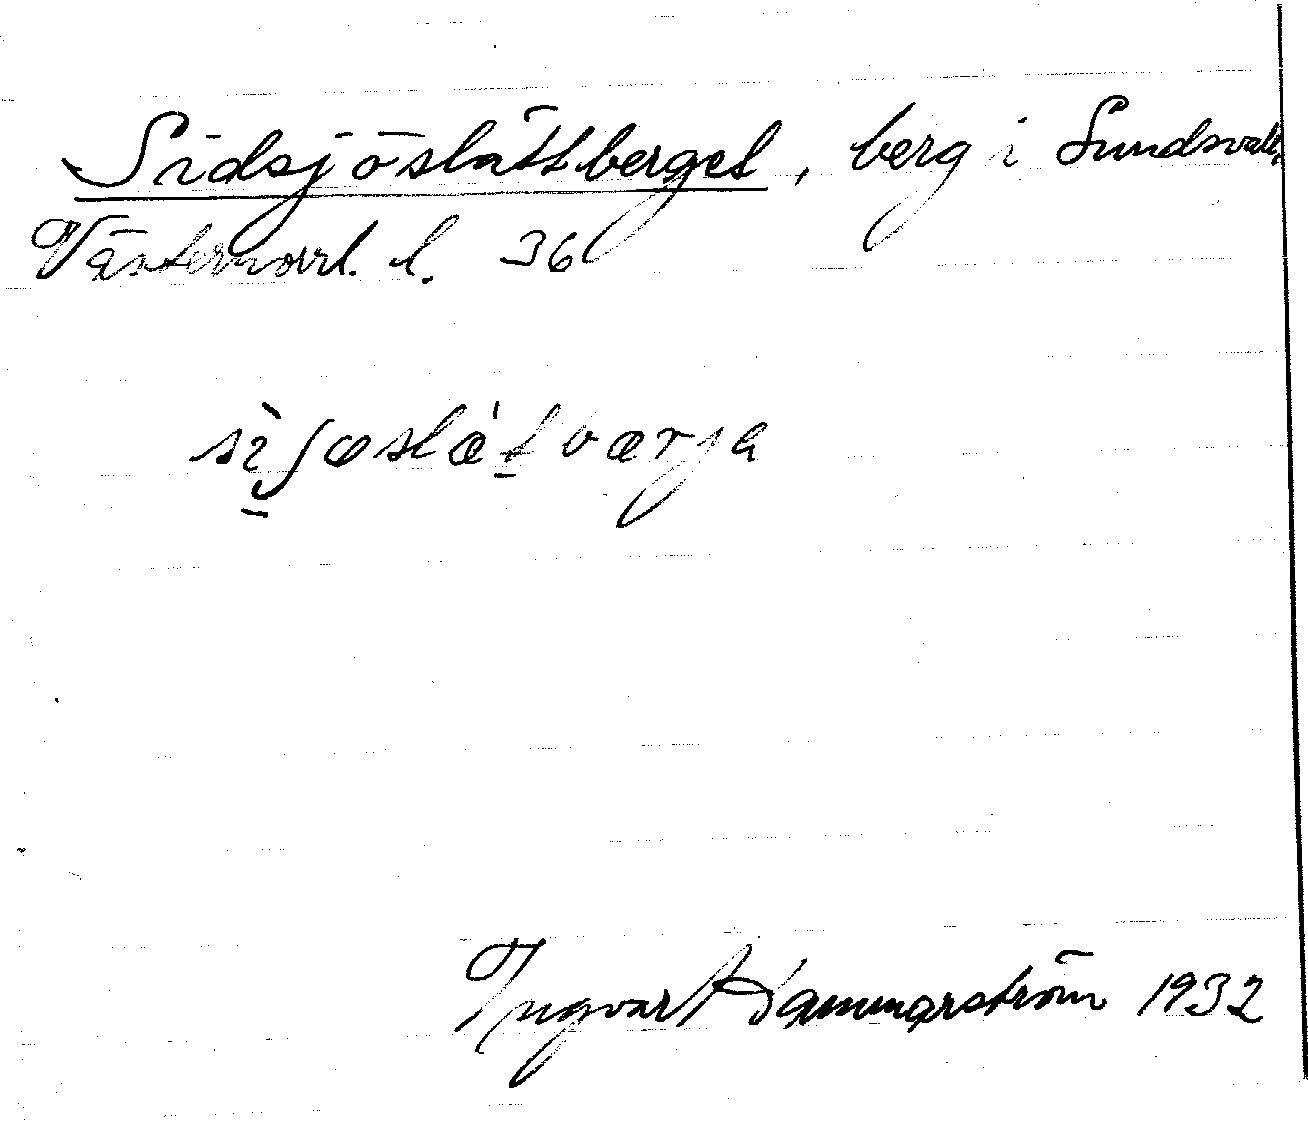 Sidsjöslåttberget, berg i Sundsvall,
Västernorrl. l. 36
Ingvar Hammarström 1932